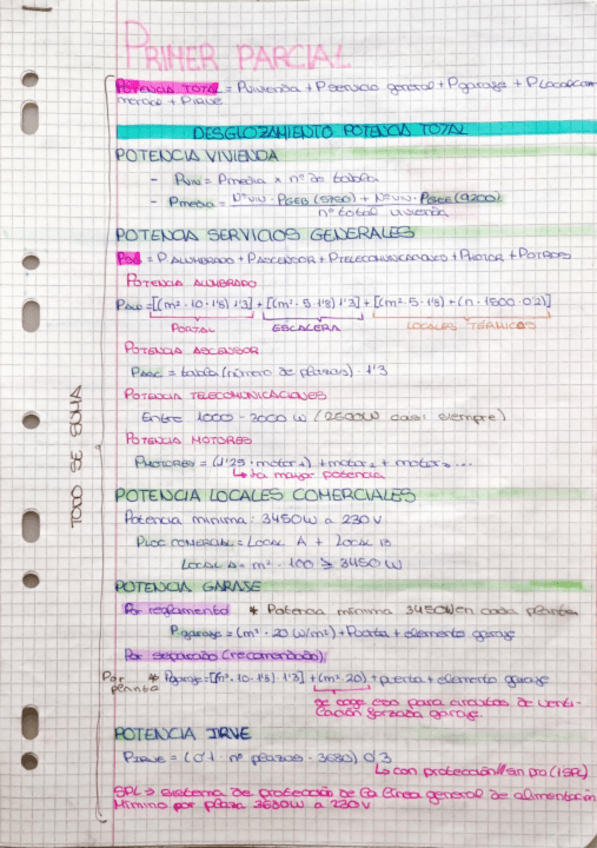 PRIMER PARCIAL
POTENCIA TOTAL = Pvivienda + Pservicio general + Pgaraje + Plocalcom
mercial + PIRVE
DESGLOZAMIENTO POTENCIA TOTAL
POTENCIA VIVIENDA
- Pviv = Pmedia x nº de tabla
- Pmedia = Nºviv · PGEB (5750) + Nºviv · PGEE (9200)
nº total vivienda
POTENCIA SERVICIOS GENERALES
= P ALUMBRADO + PASCENSOR + PTELECOMUNICACIONES + PMOTOR + POTROS
POTENCIA ALUMBRADO
PALU = [(m² · 10 · 1'8) 1'3] + [(m² · 5 · 1'8) 1'3] + [(m² · 5 · 1'8) + (n · 1500 · 0'2)]
PORTAL ESCALERA LOCALES TÉRMICOS
POTENCIA ASCENSOR
PASC = tabla (número de plazas) · 1'3
POTENCIA TELECOMUNICACIONES
Entre 1000 - 3000 W (2500W casi siempre)
POTENCIA MOTORES
PMOTORES = (1'25 · motor 1) + motor 2 + motor 3 ...
↳ la mayor potencia
TODO SE SUMA
POTENCIA LOCALES COMERCIALES
Potencia minima: 3450W a 230V
PLOC COMERCIAL = LOCAL A + LOCAL B
LOCAL A = m² · 100 ≥ 3450 W
POTENCIA GARAJE
Por reglamento * Potencia minima 3450W en cada planta
Pgaraje = (m² · 20 W/m²) + Puerta + elemento garaje
Por separado (recomendado)
Por planta * Pgaraje = [(m² · 10 · 1'8) · 1'3] + (m² · 20) + puerta + elemento garaje
se coge eso para circuitos de venti-
lación forzada garaje.
POTENCIA IRVE
PIRVE = (0'1 · nº plazas · 3680) 0'3
↳ con protección // sin pro (1SPL)
SPL → Sistema de protección de la línea general de alimentación
Mínimo por plaza 3680W a 230V